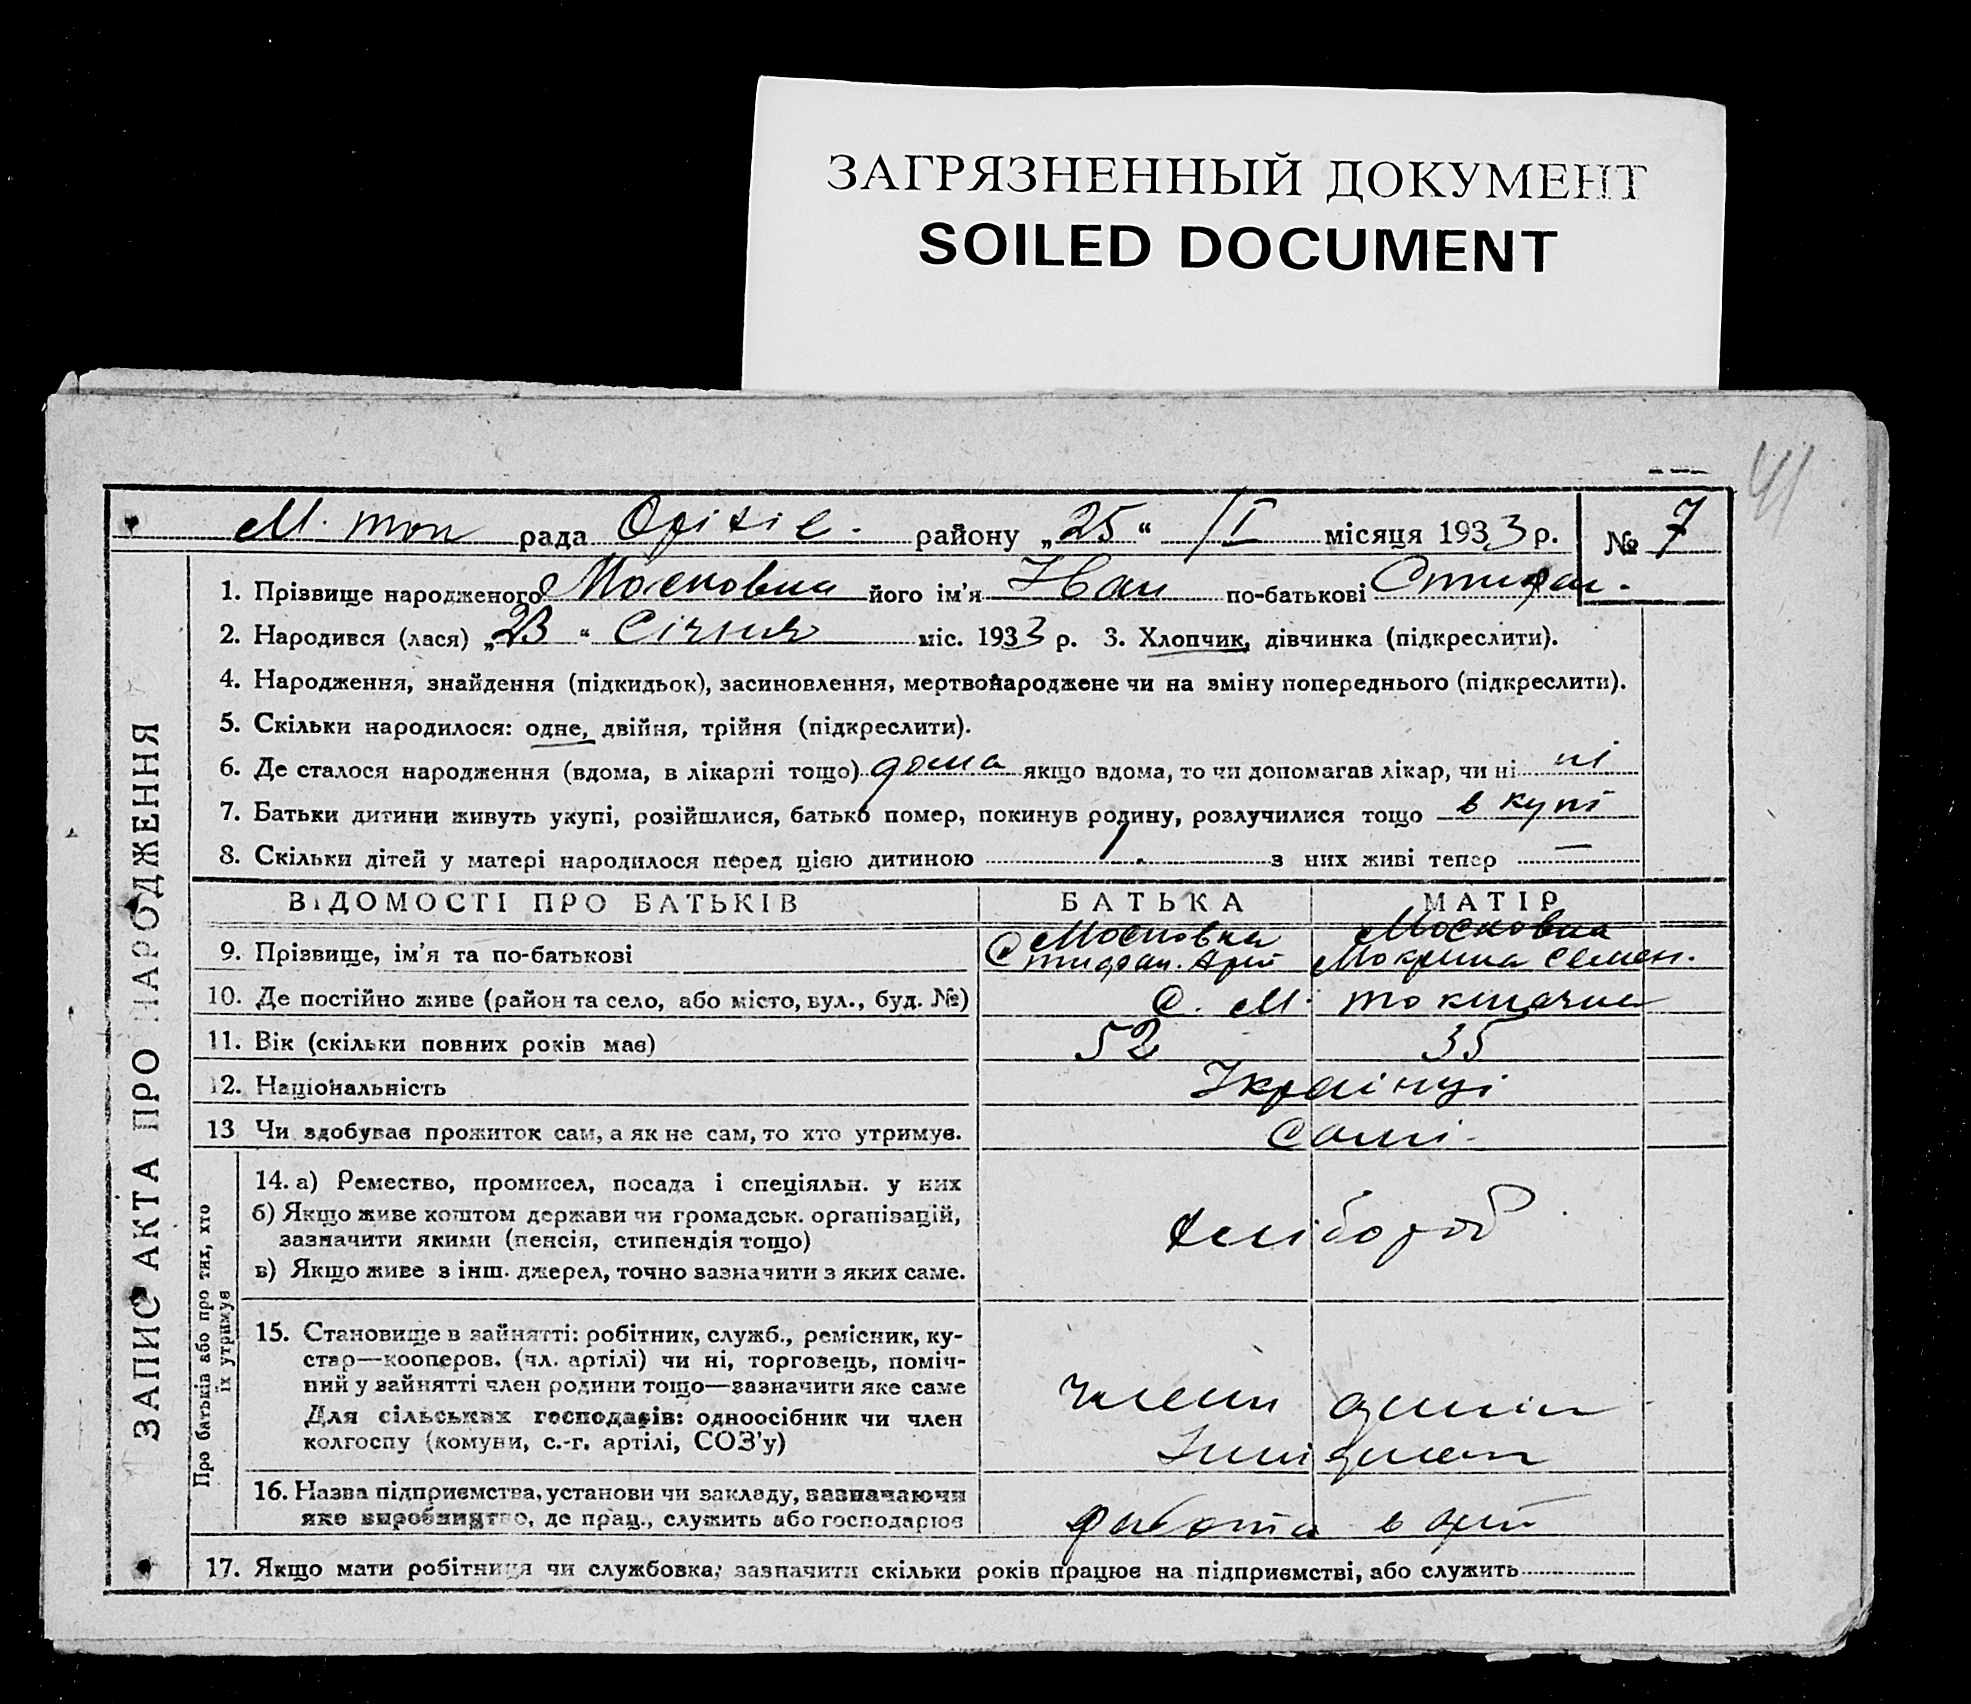 ЗАГРЯЗНЕННЫЙ ДОКУМЕНТ
SOILED DOCUMENT
41
М. Ток рада Оріхів. району „25“ /I місяця 1933 р. № 7
1. Прізвище народженого Московка його ім'я Іван по-батькові Стифан.
2. Народився (лася) „23“ Січня міс. 1933 р. 3. Хлопчик, дівчинка (підкреслити).
4. Народження, знайдення (підкидьок), засиновлення, мертвонароджене чи на зміну попереднього (підкреслити).
5. Скільки народилося: одне, двійня, трійня (підкреслити).
6. Де сталося народження (вдома, в лікарні тощо) дома якщо вдома, то чи допомагав лікар, чи ні ні
7. Батьки дитини живуть укупі, розійшлися, батько помер, покинув родину, розлучилися тощо в купі
8. Скільки дітей у матері народилося перед цією дитиною 1 з них живі тепер —
ВІДОМОСТІ ПРО БАТЬКІВ БАТЬКА МАТІР
9. Прізвище, ім'я та по-батькові Московка Стифан. Московка Мокрина Семен.
10. Де постійно живе (район та село, або місто, вул., буд. №) С. М. токмачка
11. Вік (скільки повних років має) 52 35
12. Національність Українці
13 Чи здобував прожиток сам, а як не сам, то хто утримує. Самі
14. а) Ремество, промисел, посада і спеціяльн. у них
б) Якщо живе коштом держави чи громадськ. організацій,
зазначити якими (пенсія, стипендія тощо)
в) Якщо живе з інш. джерел, точно зазначити з яких саме.
хлібороб
15. Становище в зайнятті: робітник, служб., ремісник, ку-
стар—кооперов. (чл. артілі) чи ні, торговець, поміч-
ний у зайнятті член родини тощо—зазначити яке саме
Для сільських господарів: одноосібник чи член
колгоспу (комуни, с.-г. артілі, СОЗ'у)
члени
16. Назва підприємства, установи чи закладу, зазначаючи
яке виробництво, де прац., служить або господарює
работа в
17. Якщо мати робітниця чи службовка, зазначити скільки років працює на підприємстві, або служить
ЗАПИС АКТА ПРО НАРОДЖЕННЯ
Про батьків або про тих, хто
їх утримує